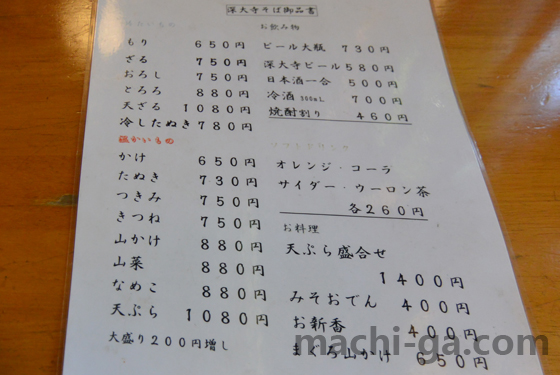 深大寺そば御品書
もり 650円
ざる 750円
おろし 750円
とろろ 880円
天ざる 1080円
冷したぬき 780円
温かいもの
かけ 650円
たぬき 730円
つきみ 750円
きつね 750円
山かけ 880円
山菜 880円
なめこ 880円
天ぷら 1080円
大盛り200円増し
お飲み物
ビール大瓶 730円
深大寺ビール 580円
日本酒一合 500円
冷酒 300mL 700円
焼酎割り 460円
ソフトドリンク
オレンジ・コーラ
サイダー・ウーロン茶
各260円
お料理
天ぷら盛合せ
1400円
みそおでん 400円
お新香 400円
まぐろ山かけ 650円
machi-ga.com